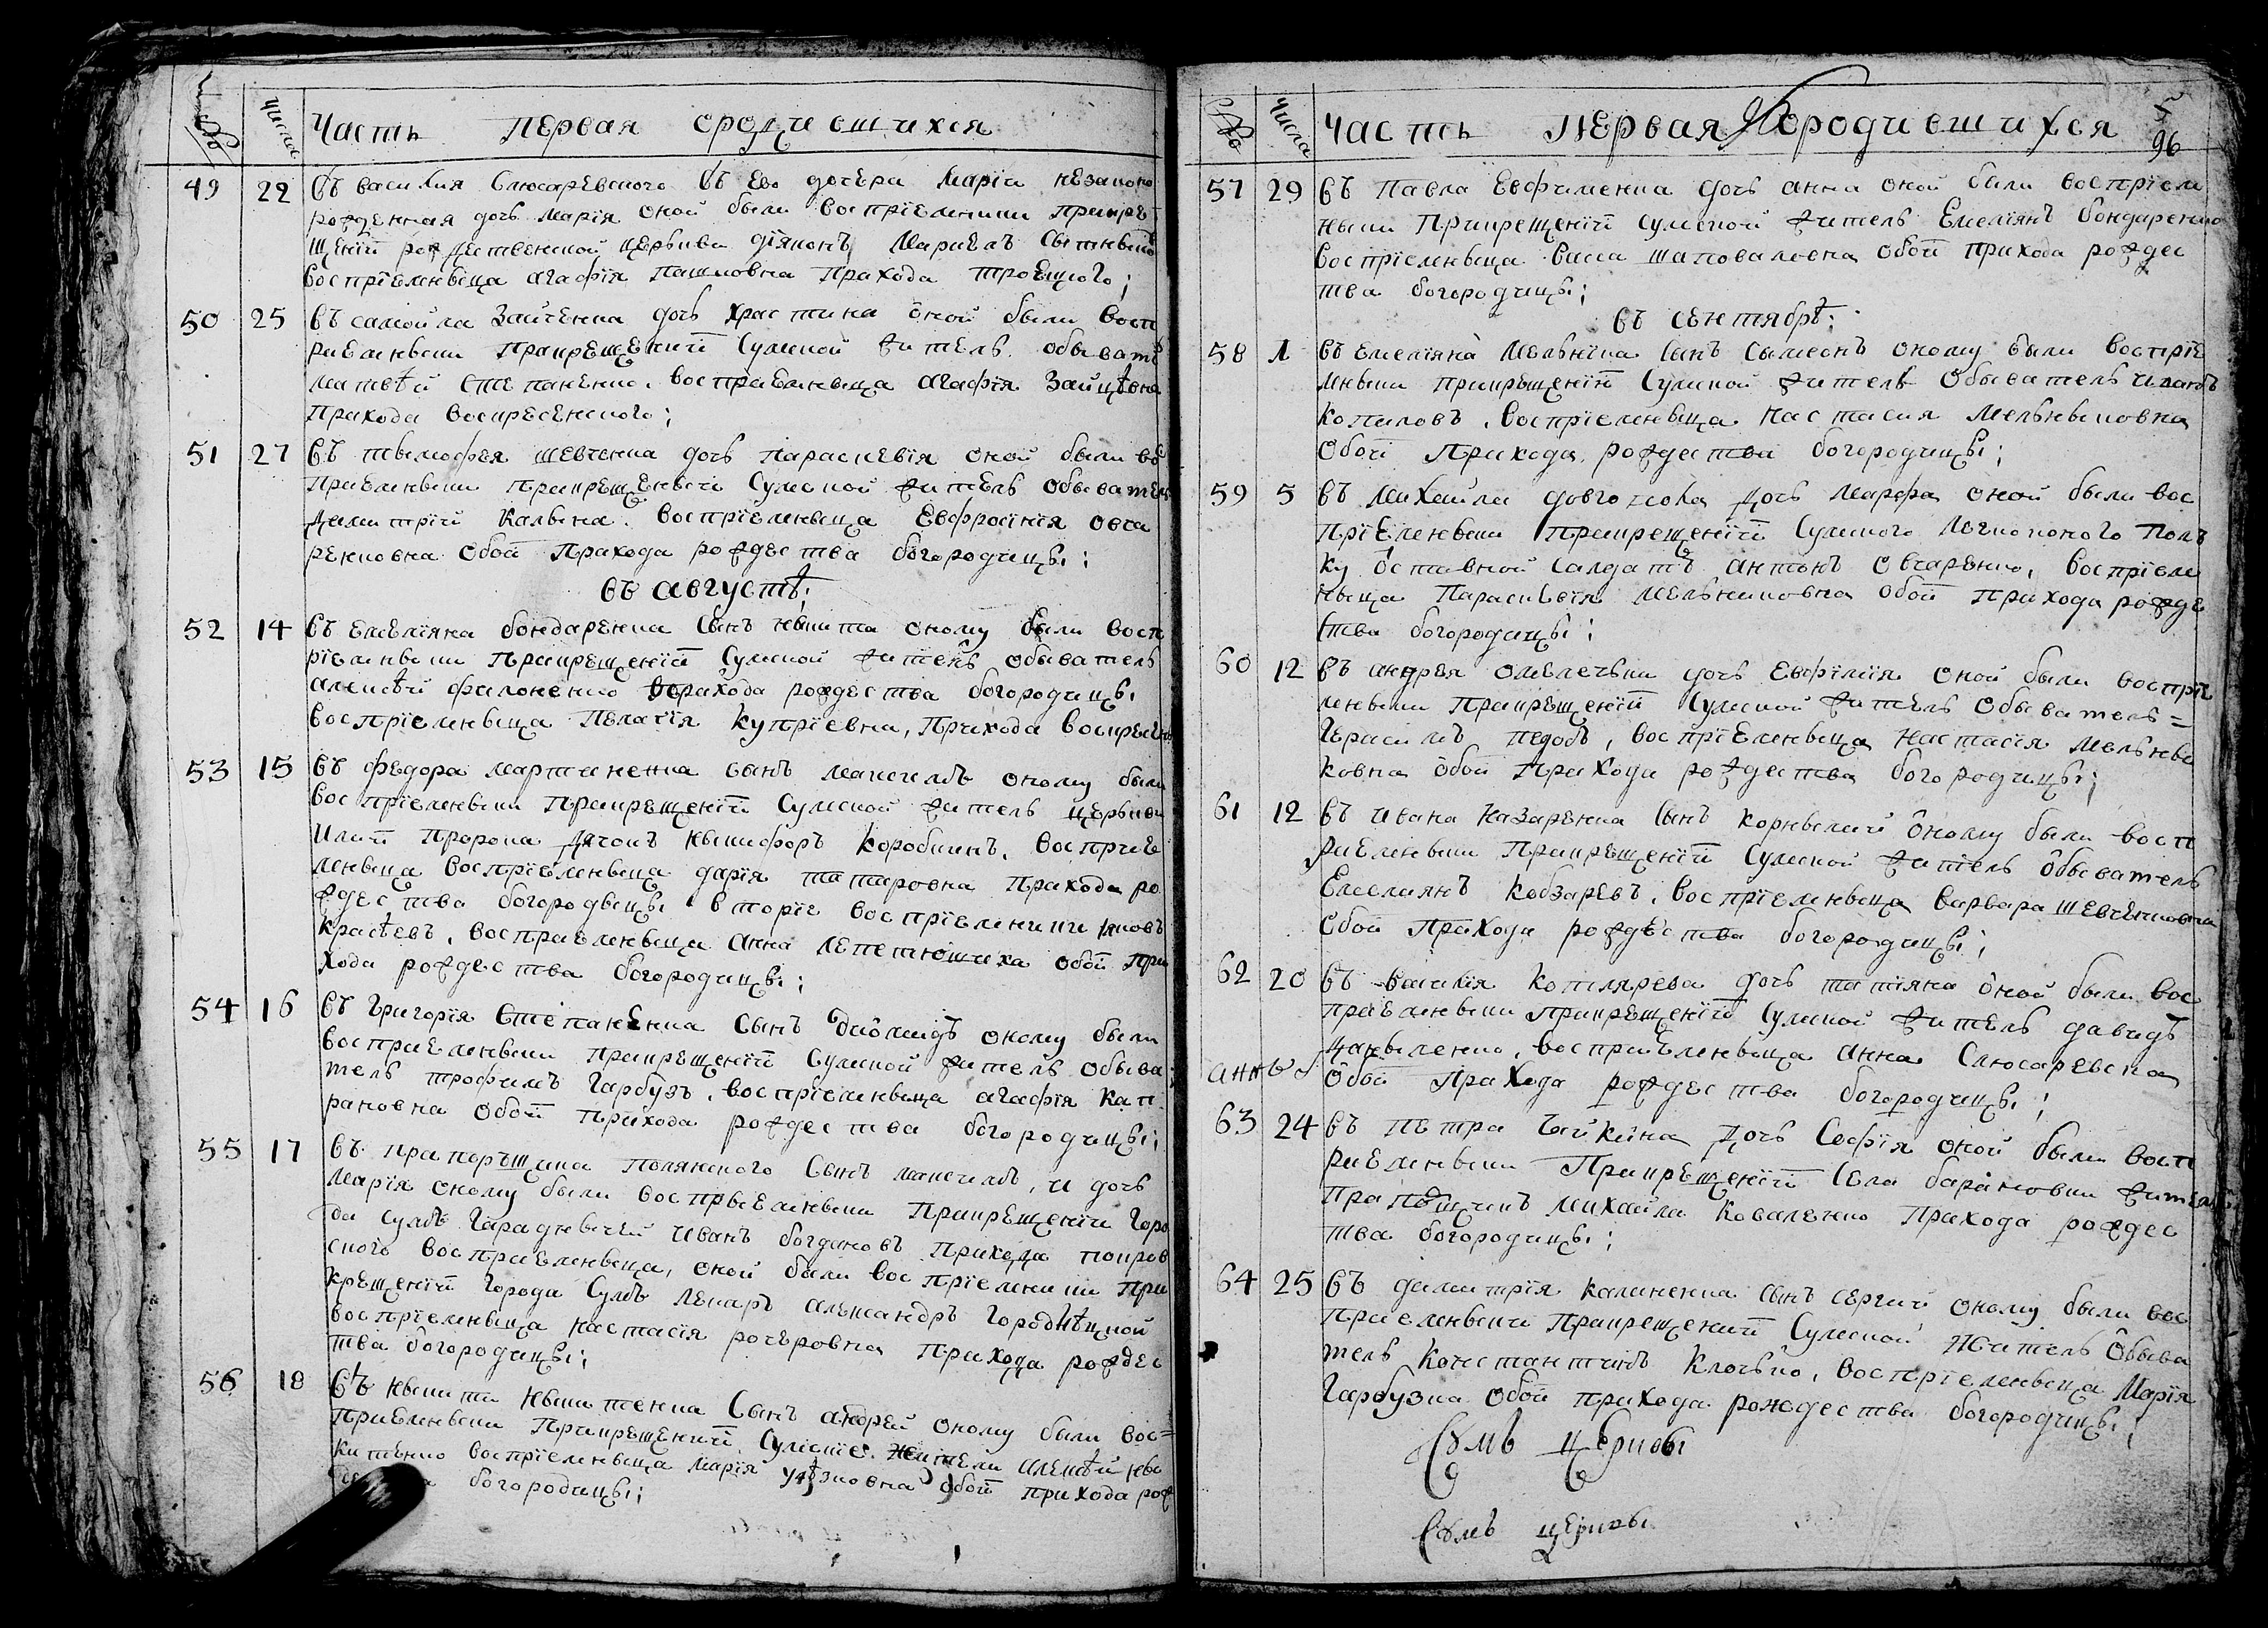 Числа
Часть первая ородившихся
49 22 Въ василия Слюсаревского въ Ево дочери Марїи незаконо
рожденная дочь марїя оной были восприемники прикре
щенїи рождественской церькви дїяконъ
восприемныца агафїя пашковна прихода троецкого;
50 25 Въ самойла Зайченка дочь христина оной были восп
риемныки прикрещенїи Сумской житель обыватъ
матвѣй степаненко. восприемныца агафїя Зайцѣвна
прихода воскресенского;
51 27 Въ тымофея шевченка дочь параскевїя оной были во
приемныки прикрещеныи Сумской житель обыватель
димитрїй Калына. восприемныца Евфросїнїя овча
ренковна обои прихода рождества богородицы;
въ августѣ;
52 14 Въ емелїяна бондаренка Сынъ никита оному были восп
рїемныки прикрещенїи Сумской житель обыватель
алексѣй филоненко прихода рождества богородицы
восприемныца пелагїя купрїевна, прихода воскресен
53 15 Въ федора мартиненка сынъ максимъ оному были
восприемныки прикрещенїи Сумской житель церькви
Илїи пророка дячокъ никифоръ коробкинъ. восприе
мныца восприемныца дарїя татаровна прихода ро
ждества богородыцы вторїе восприемники яковъ
красѣевъ. восприемныца анна лепетюшиха обои при
хода рождества богородицы;
54 16 Въ Григорїя Степаненка Сынъ диомидъ оному были
восприемныки прикрещенїи Сумской житель обыва
тель трофимъ Гарбузъ. восприемныца агафїя кап
рановна обои прихода рождества богородицы;
55 17 Въ прапорщика полянского Сынъ максимъ, и дочь
Марїя оному были восприемныки прикрещенїи Горо
да Сумъ Гарадничей иванъ богдановъ прихода покров
ского восприемныца, оной были восприемники при
крещенїи города Сумъ лекаръ александръ Городнѣцкой
восприемныца настасїя рочеровна прихода рождес
тва богородицы;
56 18 Въ никити никитенка Сынъ андрей оному были вос=
приемныки прикрещенїи Сумские жители алексѣй ны
китенко восприемныца марїя обои прихода рож
богородицы;
Числа
Часть Первая Породившихся
96
57 29 Въ Павла Евфименка дочь анна оной были восприем
ныки прикрещенїи Сумской житель Емелїянъ бондаренко
восприемныца васса шаповаловна обои прихода рождес
тва богородицы;
въ сентябрѣ;
58 1 Въ емелїяна мельника Сынъ Сымеонъ оному были восприе
мныки прикрещенїи Сумской житель обыватель иванъ
копиловъ. восприемныца настасия мельныковна
обои прихода рождества богородицы;
59 5 Въ михайла довгополa дочь марфа оной были вос
приемныки прикрещенїи Сумского легкоконого полъ
ку оставной Салдатъ антонъ овчаренко, восприем
ныца параскевїя мельниковна обои прихода рожде
ства богородицы;
60 12 Въ андрея омелечьки дочь евфимїя оной были восприе
мныки прикрещенїи Сумской житель обыватель=
Герасимъ педобъ, восприемныца настасїя мельны
ковна обои прихода рождества богородицы;
61 12 Въ ивана назаренка Сынъ корнылий оному были восп
риемныки прикрещенїи Сумской житель обыватель
Емелиянъ кобзаревъ. восприемныца варвара шевченковна
обои прихода рождества богородицы;
62 20 Въ василїя котлярева дочь татїяна оной были вос
приемныки прикрещенїи Сумской житель давидъ
восприемныца анна Слюсаревска
обои прихода рождества богородицы;
63 24 Въ петра дочь Софїя оной были восп
риемныки прикрещенїи Села барановки жителъ
михайла коваленко прихода рождес
тва богородицы;
64 25 Въ димитрїя калиненка Сынъ Сергий оному были вос
приемныки прикрещении Сумской житель обыва
тель константинъ клочько, восприемныца Марїя
Гарбузка обои прихода рождества богородицы;
церкві
церкві